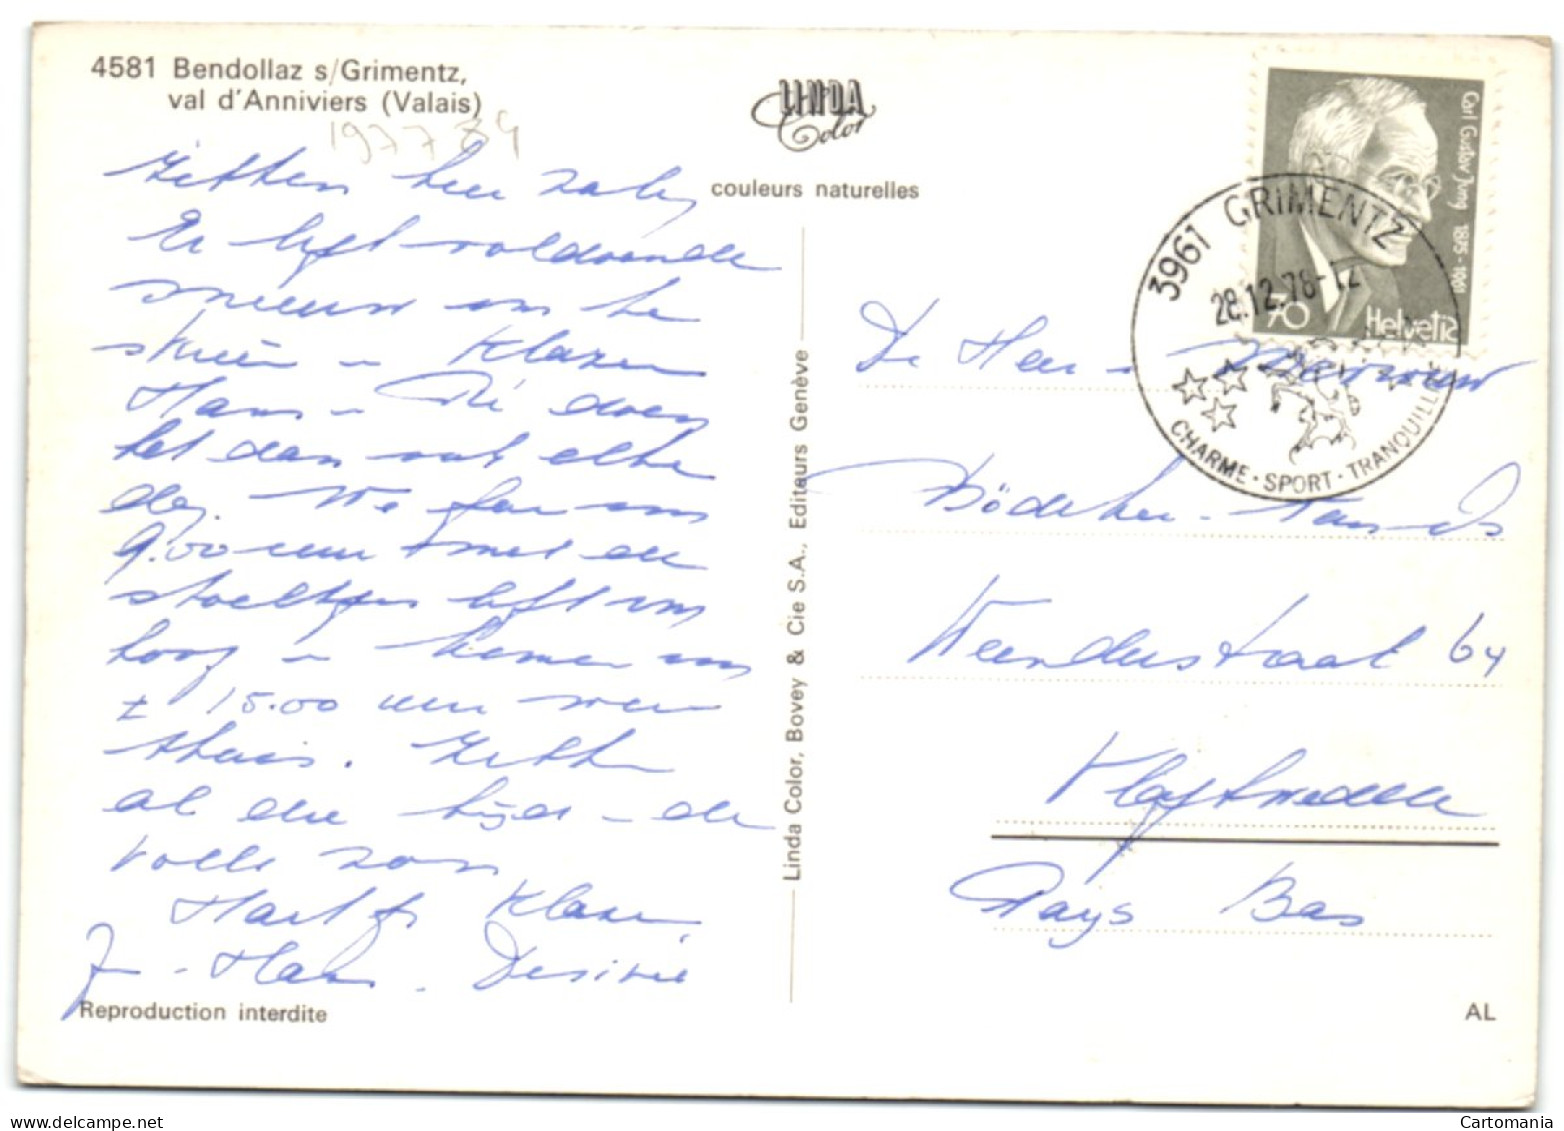 4581 Bendollaz s/Grimentz,
val d'Anniviers (Valais)
LINDA
Color
couleurs naturelles
1977 84
Zitten hier zalig
Er ligt voldoende
sneeuw om te
skiën - Klazien
Hans - Dé doen
het dan ook elke
dag. We gaan om
9.00 uur met de
stoeltjes lift om
hoog - komen om
± 15.00 uur weer
thuis. Zitten
al die tijd - de
volle zon
Hartgr Klazien,
J - Hans - Desiree
Reproduction interdite
Linda Color, Bovey & Cie S.A., Editeurs Genève
Carl Gustav Jung 1875-1961
70 Helvetia
3961 GRIMENTZ
28.12.78-12
CHARME · SPORT · TRANQUILLITE
De Heer - Mevrouw
Bödeker -
Weenderstraat 64
Vlagtwedde
Pays Bas
AL
Cartomania